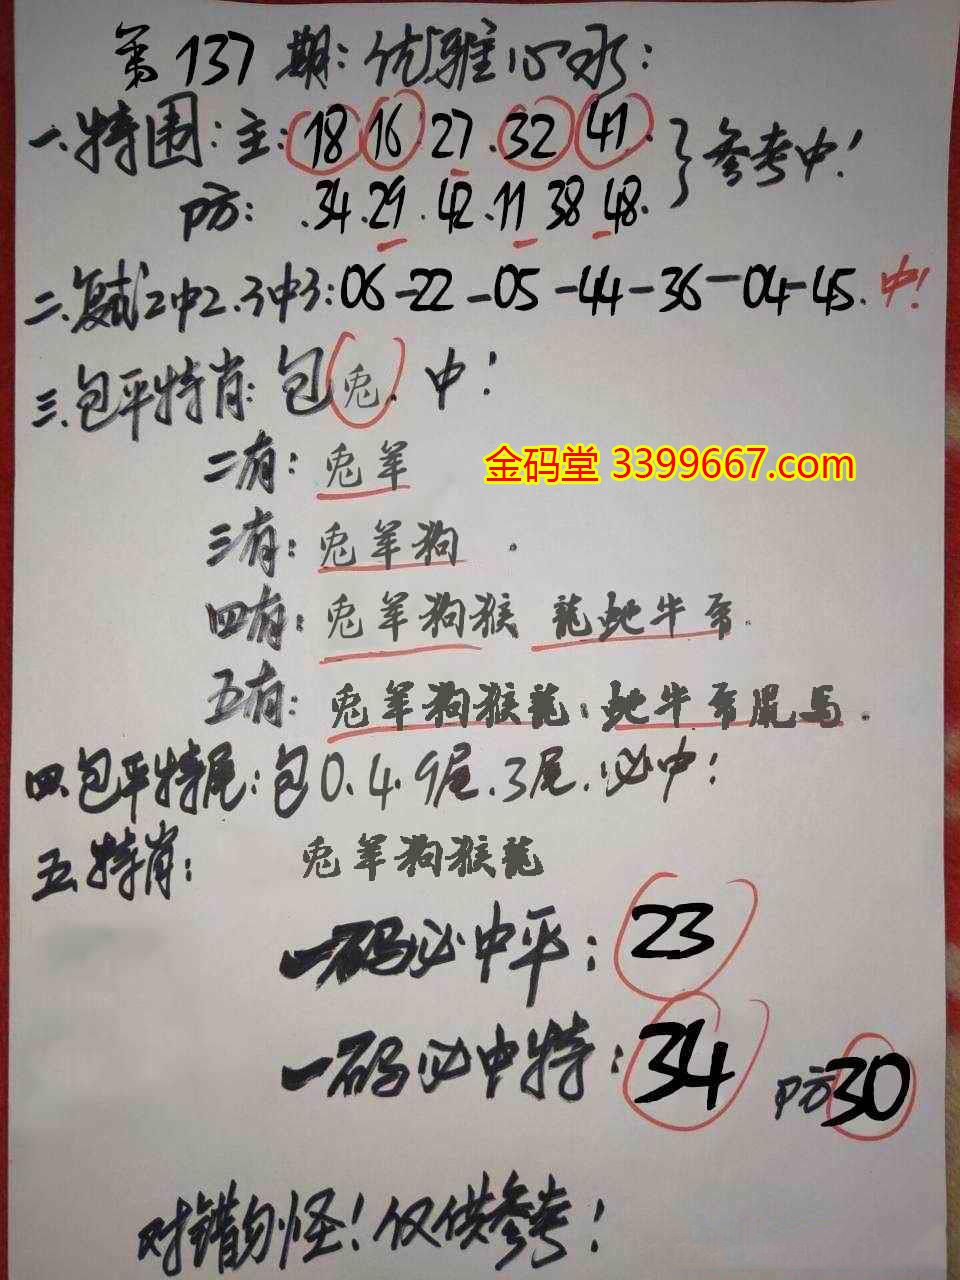 第137期:优雅心水:
一.特围:主:18 16 27.32 41.}参考中!
防:.34.29.42.11 38 48.
二.复式2中2.3中3:06-22-05-44-36-04-45.中!
三.包平特肖:包兔.中!
二有:兔羊
金码堂 3399667.com
三有:兔羊狗.
四有:兔羊狗猴 龍蛇牛
五有:兔羊狗猴龍:蛇牛鼠马.
四.包平特尾:包0.4.9尾.3尾.必中!
五.特肖:兔羊狗猴龍
一码必中平:23
一码必中特:34 防30
对错勿怪!仅供参考!